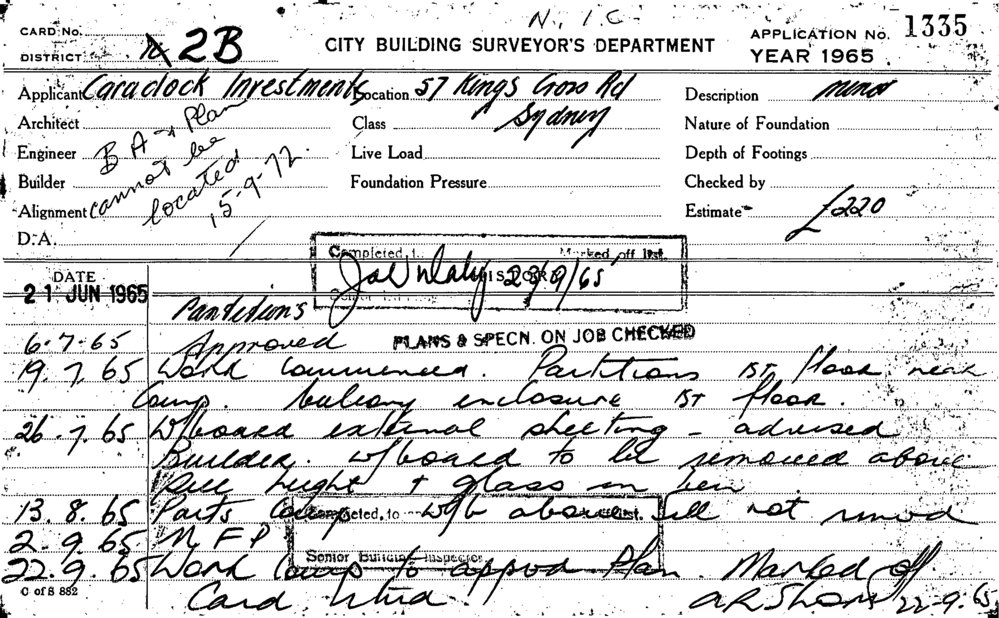 N.I.C.
CARD No.
DISTRICT 2B
CITY BUILDING SURVEYOR'S DEPARTMENT
APPLICATION No. 1335
YEAR 1965
Applicant Caraclock Investments Location 57 Kings Cross Rd Description minor
Architect Class Sydney Nature of Foundation
Engineer Live Load Depth of Footings
Builder Foundation Pressure Checked by
Alignment Estimate £220
D.A.
B A & Plan
cannot be
located
15-9-72.
Completed, Marked off list
23/9/65
DATE
21 JUN 1965 Partitions
6-7-65 Approved PLANS & SPECN. ON JOB CHECKED
19.7.65 Work commenced. Partitions 1ST floor near
Comp. balcony enclosure 1ST floor.
26.7.65 W/board external sheeting - advised
Builder. W/board to be removed above
sill height & glass in lieu
13.8.65 Parts Comp W/b above sill not removed
2.9.65 N F P
Completed, to list.
Senior Building Inspector
22.9.65 Work Comp to approd Plan. Marked off
Card 22-9-65
C of S 882